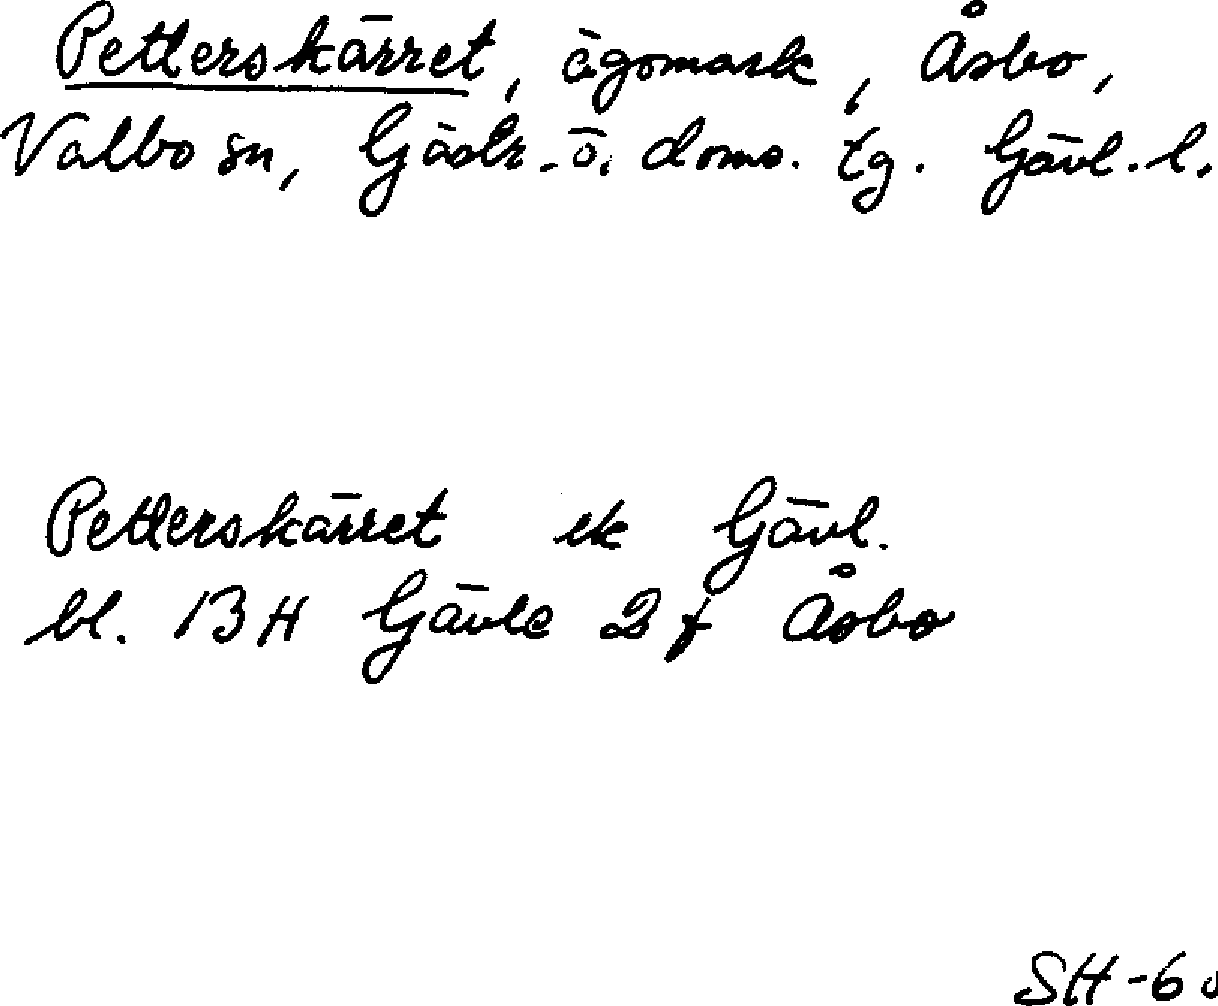 Petterskärret, ägomark, Åsbo,
Valbo sn, Gästr. ö. doms. tg. Gävl. l.
Petterskärret ek Gävl.
bl. 13H Gävle 2 f Åsbo
SH-60